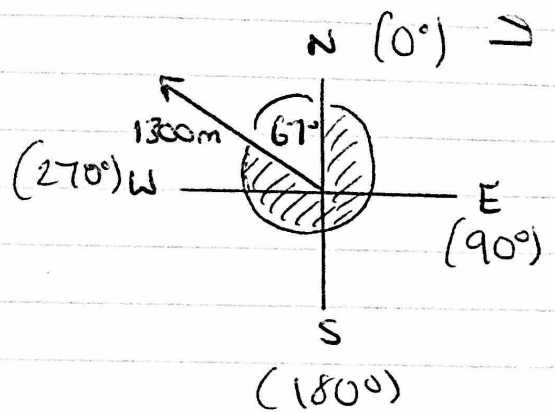 N (0°)
67°
1300m
(270°) W
E
(90°)
S
(180°)